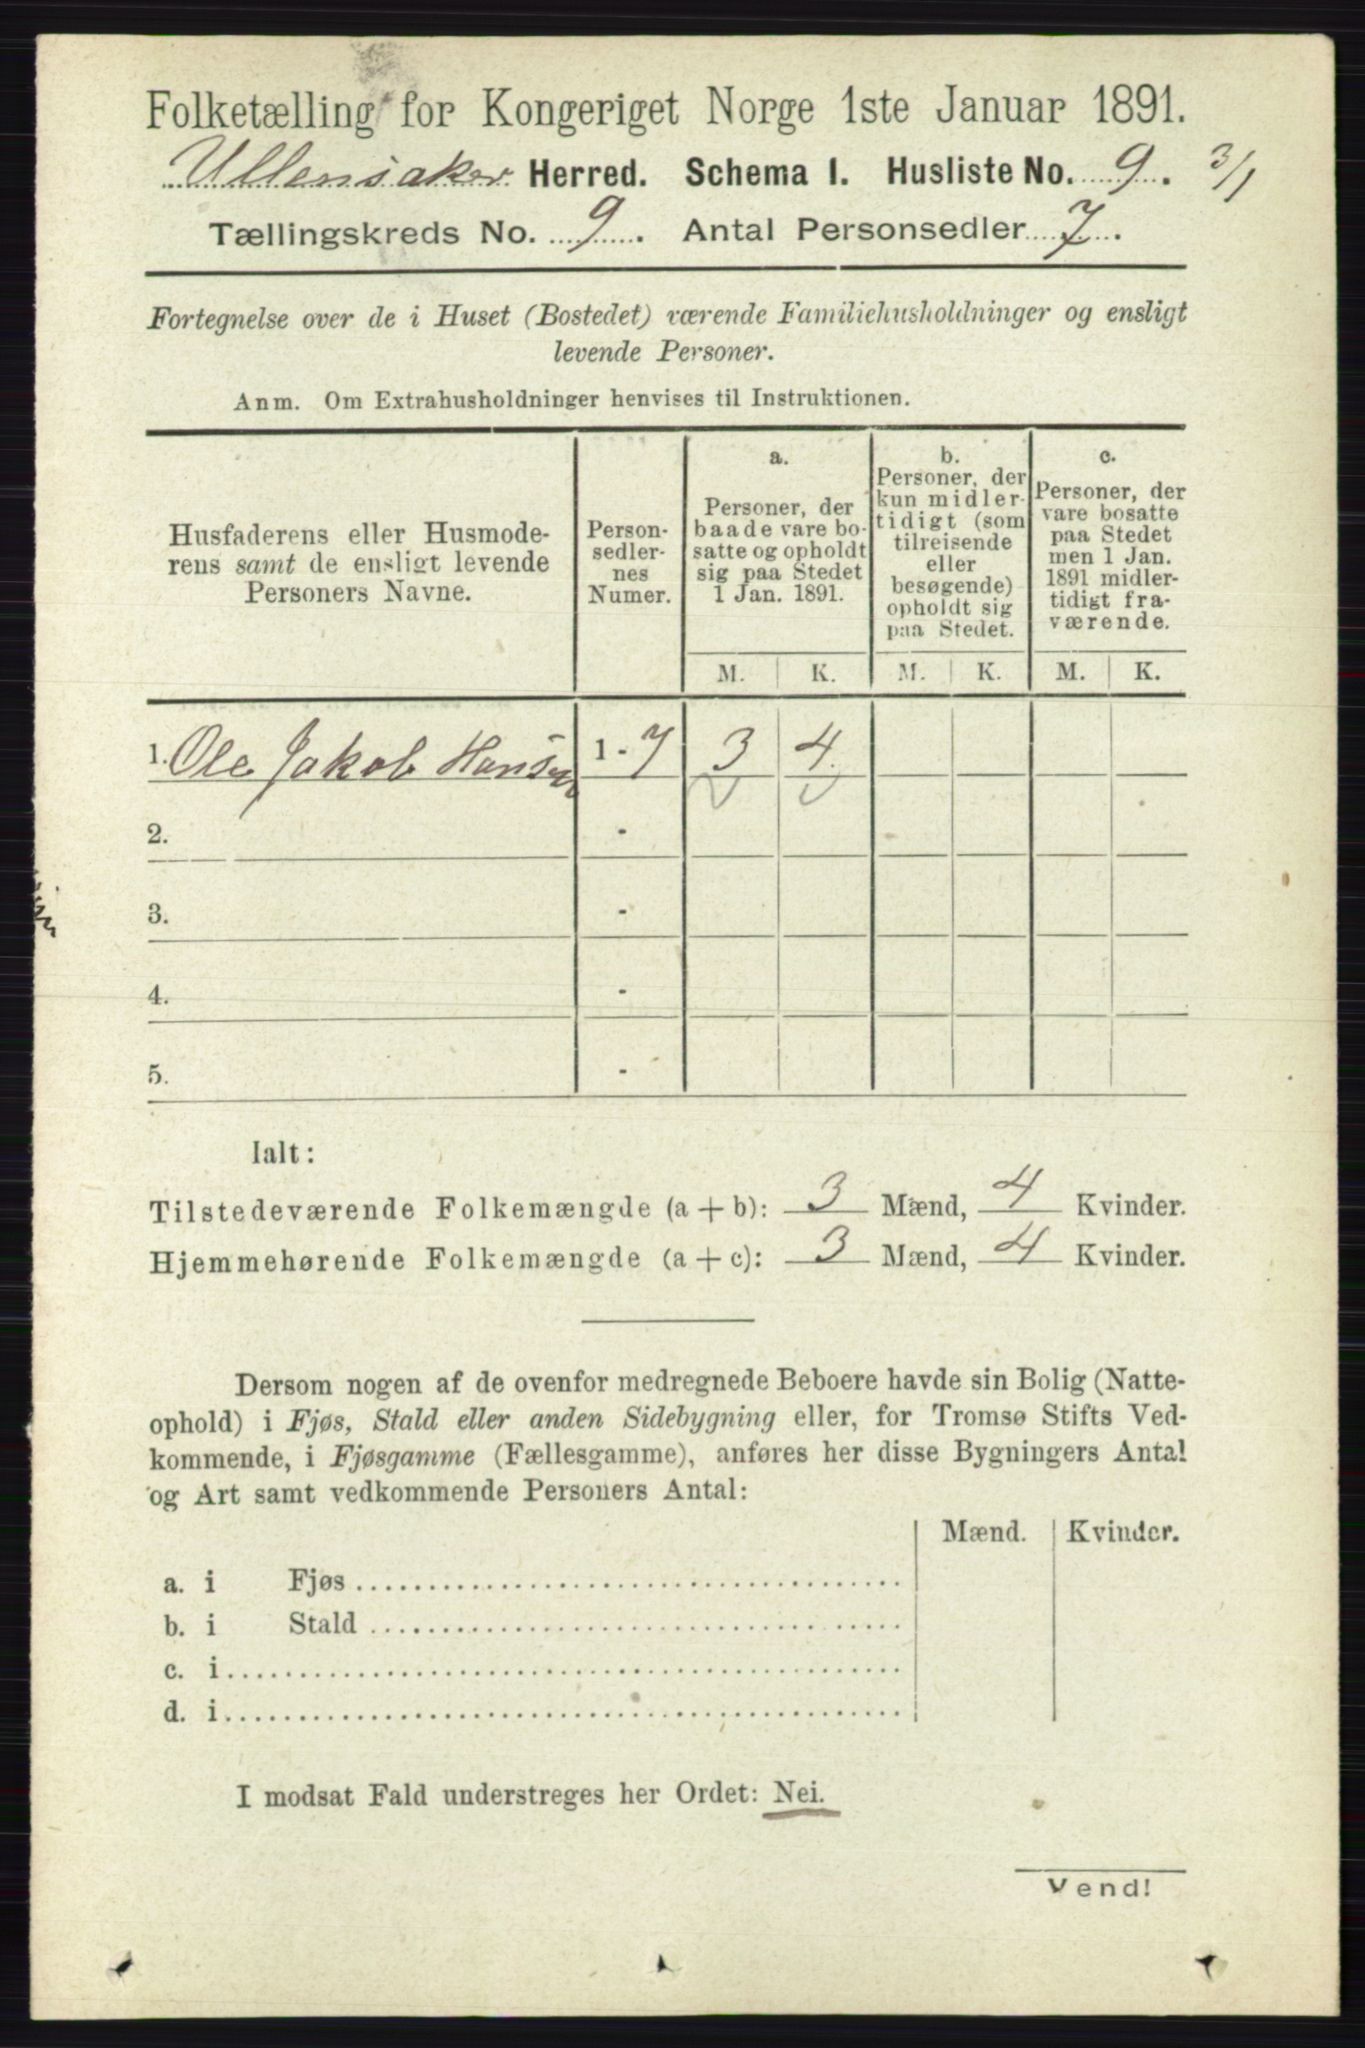 Folketælling for Kongeriget Norge 1ste Januar 1891.
Ullensaker Herred. Schema I. Husliste No. 9. 3/1
Tællingskreds No. 9. Antal Personsedler 7.
Fortegnelse over de i Huset (Bostedet) værende Familiehusholdninger og ensligt
levende Personer.
Anm. Om Extrahusholdninger henvises til Instruktionen.
Husfaderens eller Husmode-
rens samt de ensligt levende
Personers Navne.
Person-
sedler-
nes
Numer.
a.
Personer, der
baade vare bo-
satte og opholdt
sig paa Stedet
1 Jan. 1891.
b.
Personer, der
kun midler-
tidigt (som
tilreisende
eller
besøgende)
opholdt sig
paa Stedet.
c.
Personer, der
vare bosatte
paa Stedet
men 1 Jan.
1891 midler-
tidigt fra-
værende.
M. K. M. K. M. K.
1. Ole Jakob Hansen 1 - 7 3 4.
2. -
3. -
4. -
5. -
Ialt:
Tilstedeværende Folkemængde (a + b): 3 Mænd, 4 Kvinder.
Hjemmehørende Folkemængde (a + c): 3 Mænd, 4 Kvinder.
Dersom nogen af de ovenfor medregnede Beboere havde sin Bolig (Natte-
ophold) i Fjøs, Stald eller anden Sidebygning eller, for Tromsø Stifts Ved-
kommende, i Fjøsgamme (Fællesgamme), anføres her disse Bygningers Antal
og Art samt vedkommende Personers Antal:
Mænd. Kvinder.
a. i Fjøs
b. i Stald
c. i
d. i
I modsat Fald understreges her Ordet: Nei.
Vend!